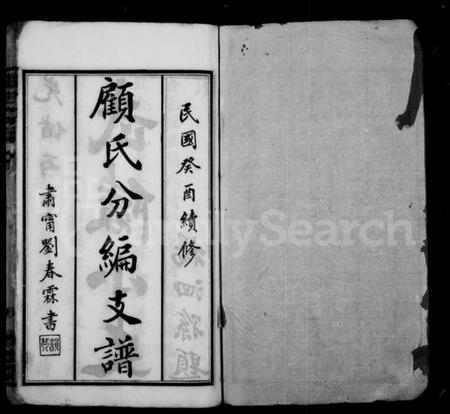 民國癸酉續修
顧氏分編支譜
肅甯劉春霖書
FamilySearch